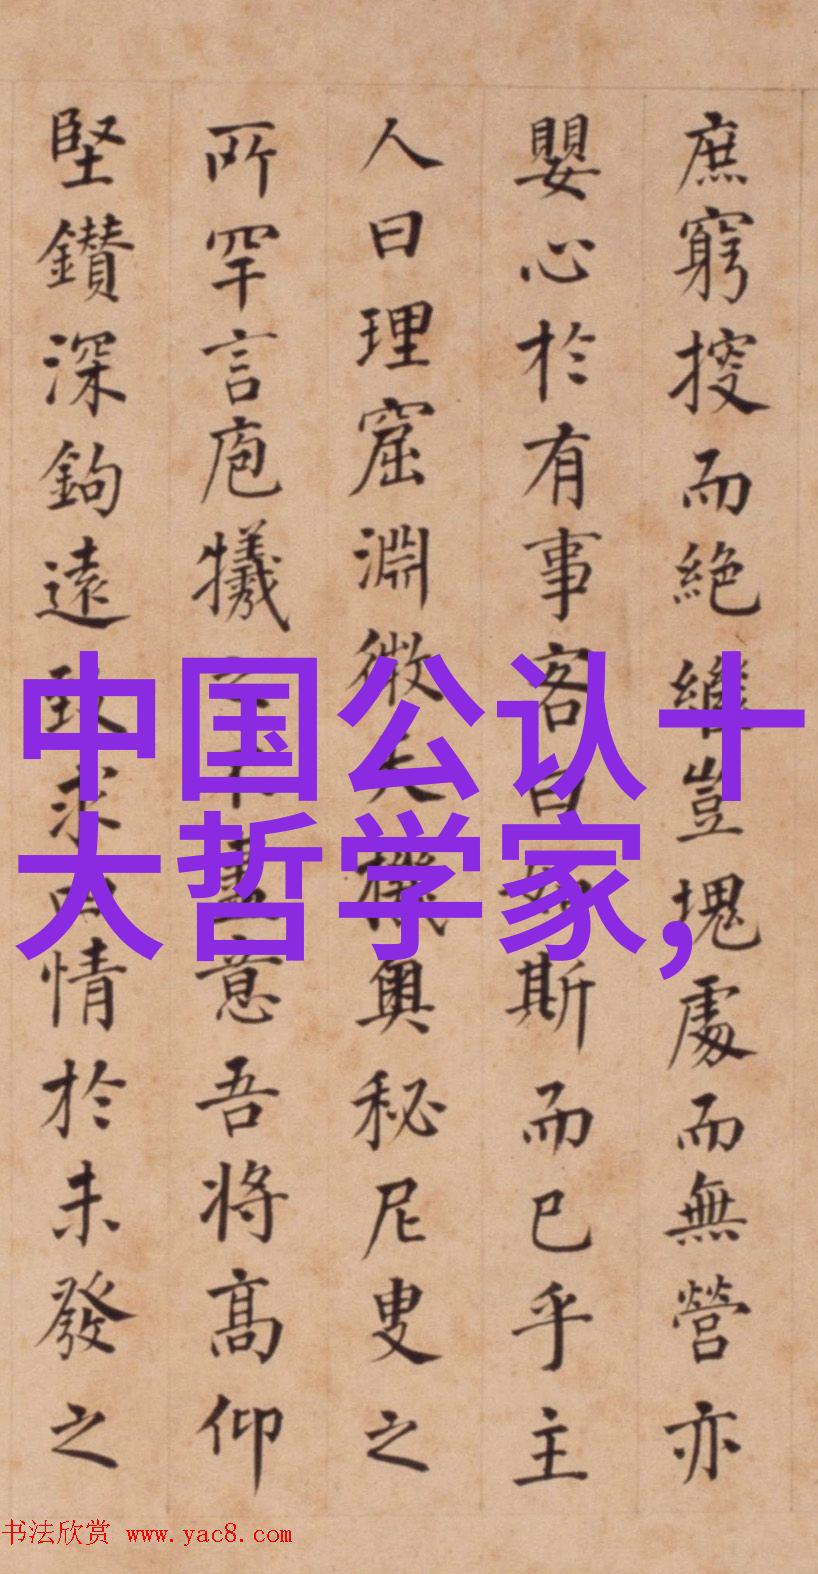 庶窮而絶繼豈塊處而無營亦
嬰心於有事客曰如斯而已乎主
人曰理窟淵微天機奥秘尼叟之
所罕言庖犧之不意吾将高仰
堅鑽深鉤遠致求情於未發之
中国公认十
大哲学家,
书法欣赏 www.yac8.com